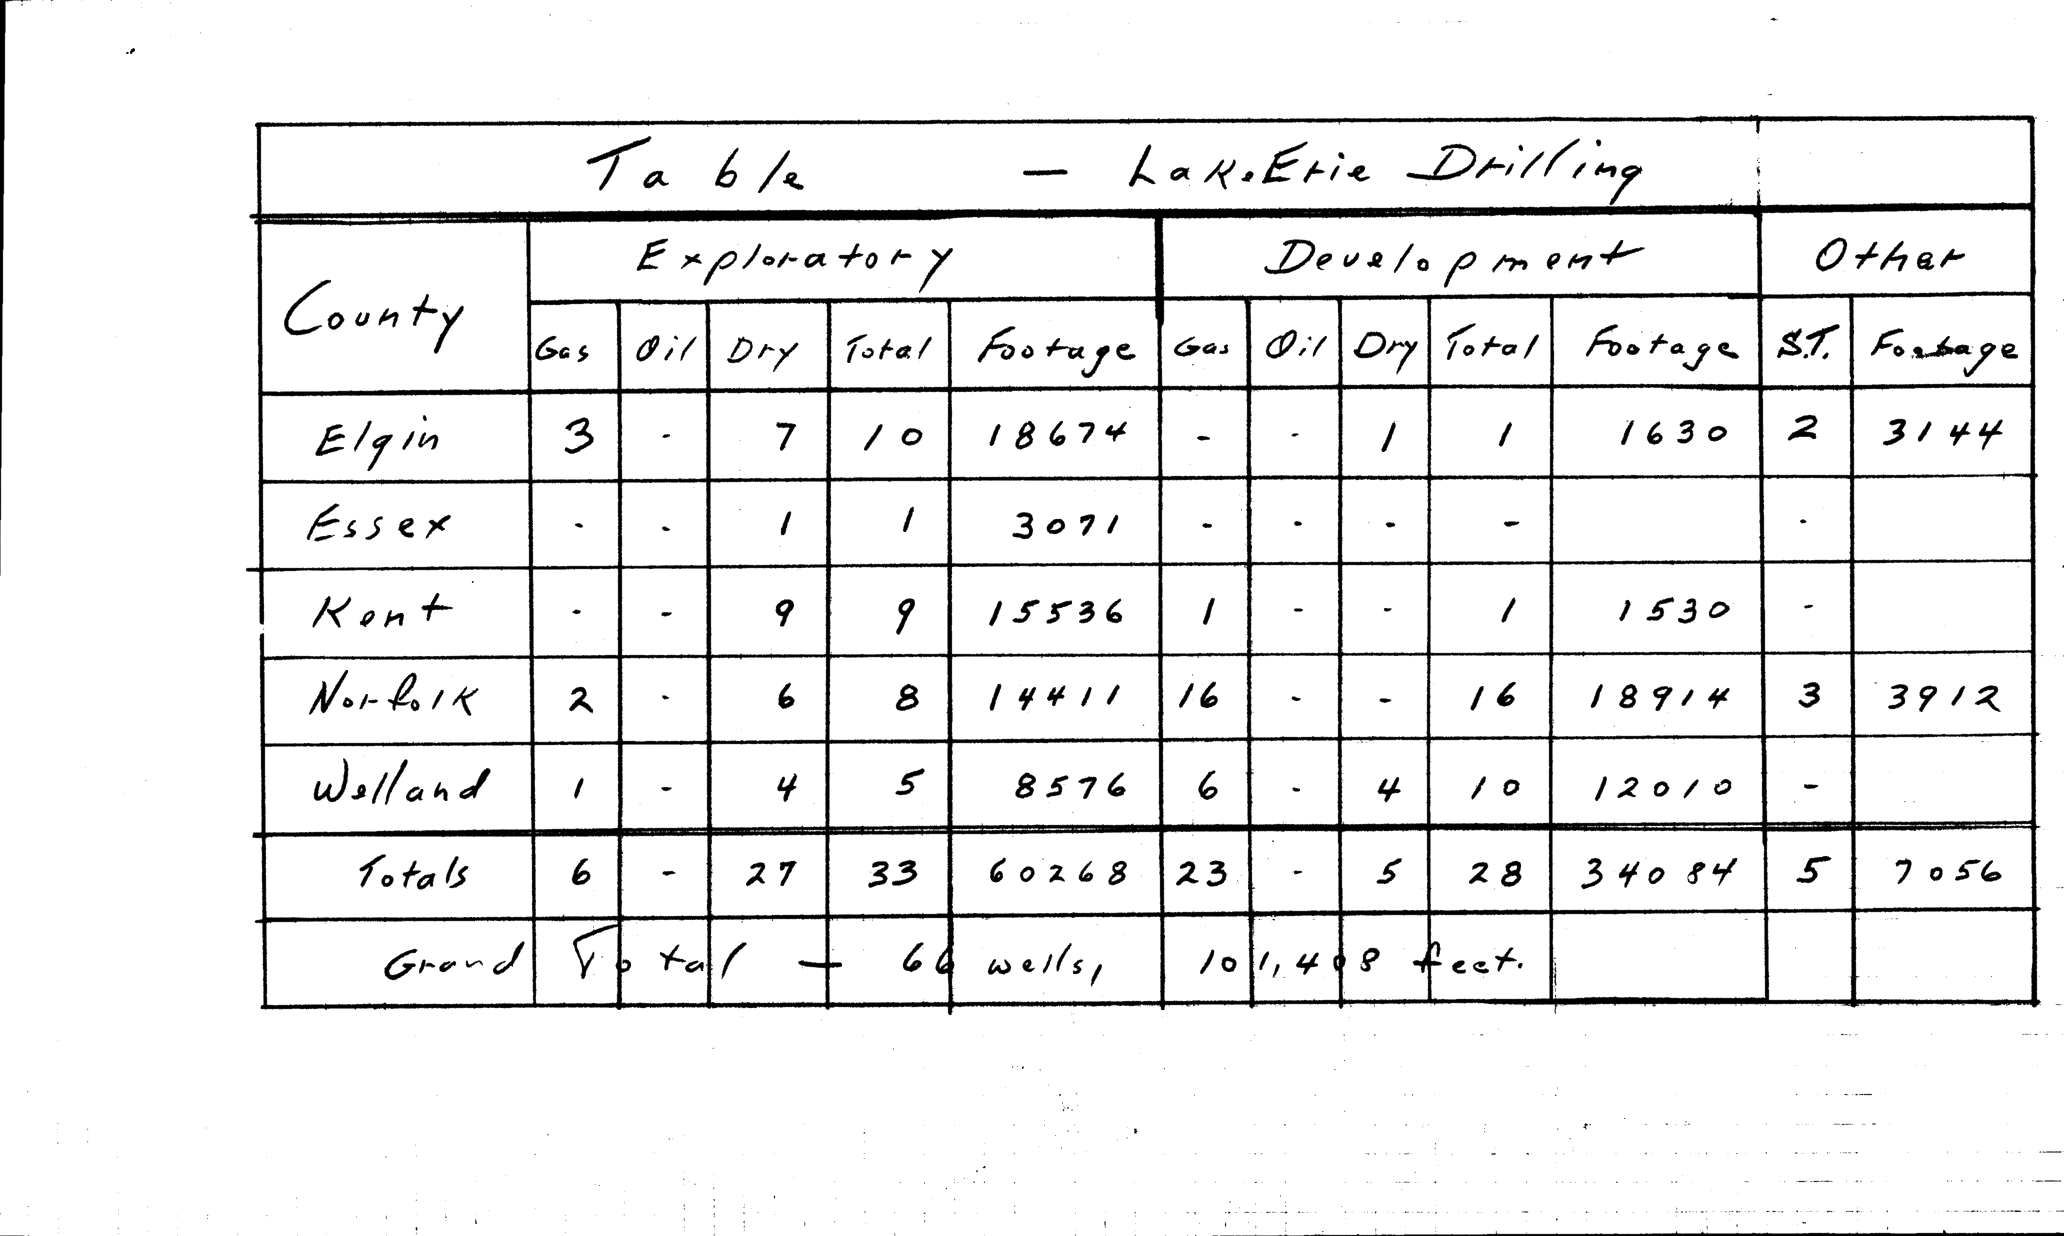 Table — Lake Erie Drilling
County Exploratory Development Other
Gas Oil Dry Total Footage Gas Oil Dry Total Footage S.T. Footage
Elgin 3 - 7 10 18674 - - 1 1 1630 2 3144
Essex - - 1 1 3071 - - - - -
Kent - - 9 9 15536 1 - - 1 1530 -
Norfolk 2 - 6 8 14411 16 - - 16 18914 3 3912
Welland 1 - 4 5 8576 6 - 4 10 12010 -
Totals 6 - 27 33 60268 23 - 5 28 34084 5 7056
Grand Total — 66 wells, 101,408 feet.